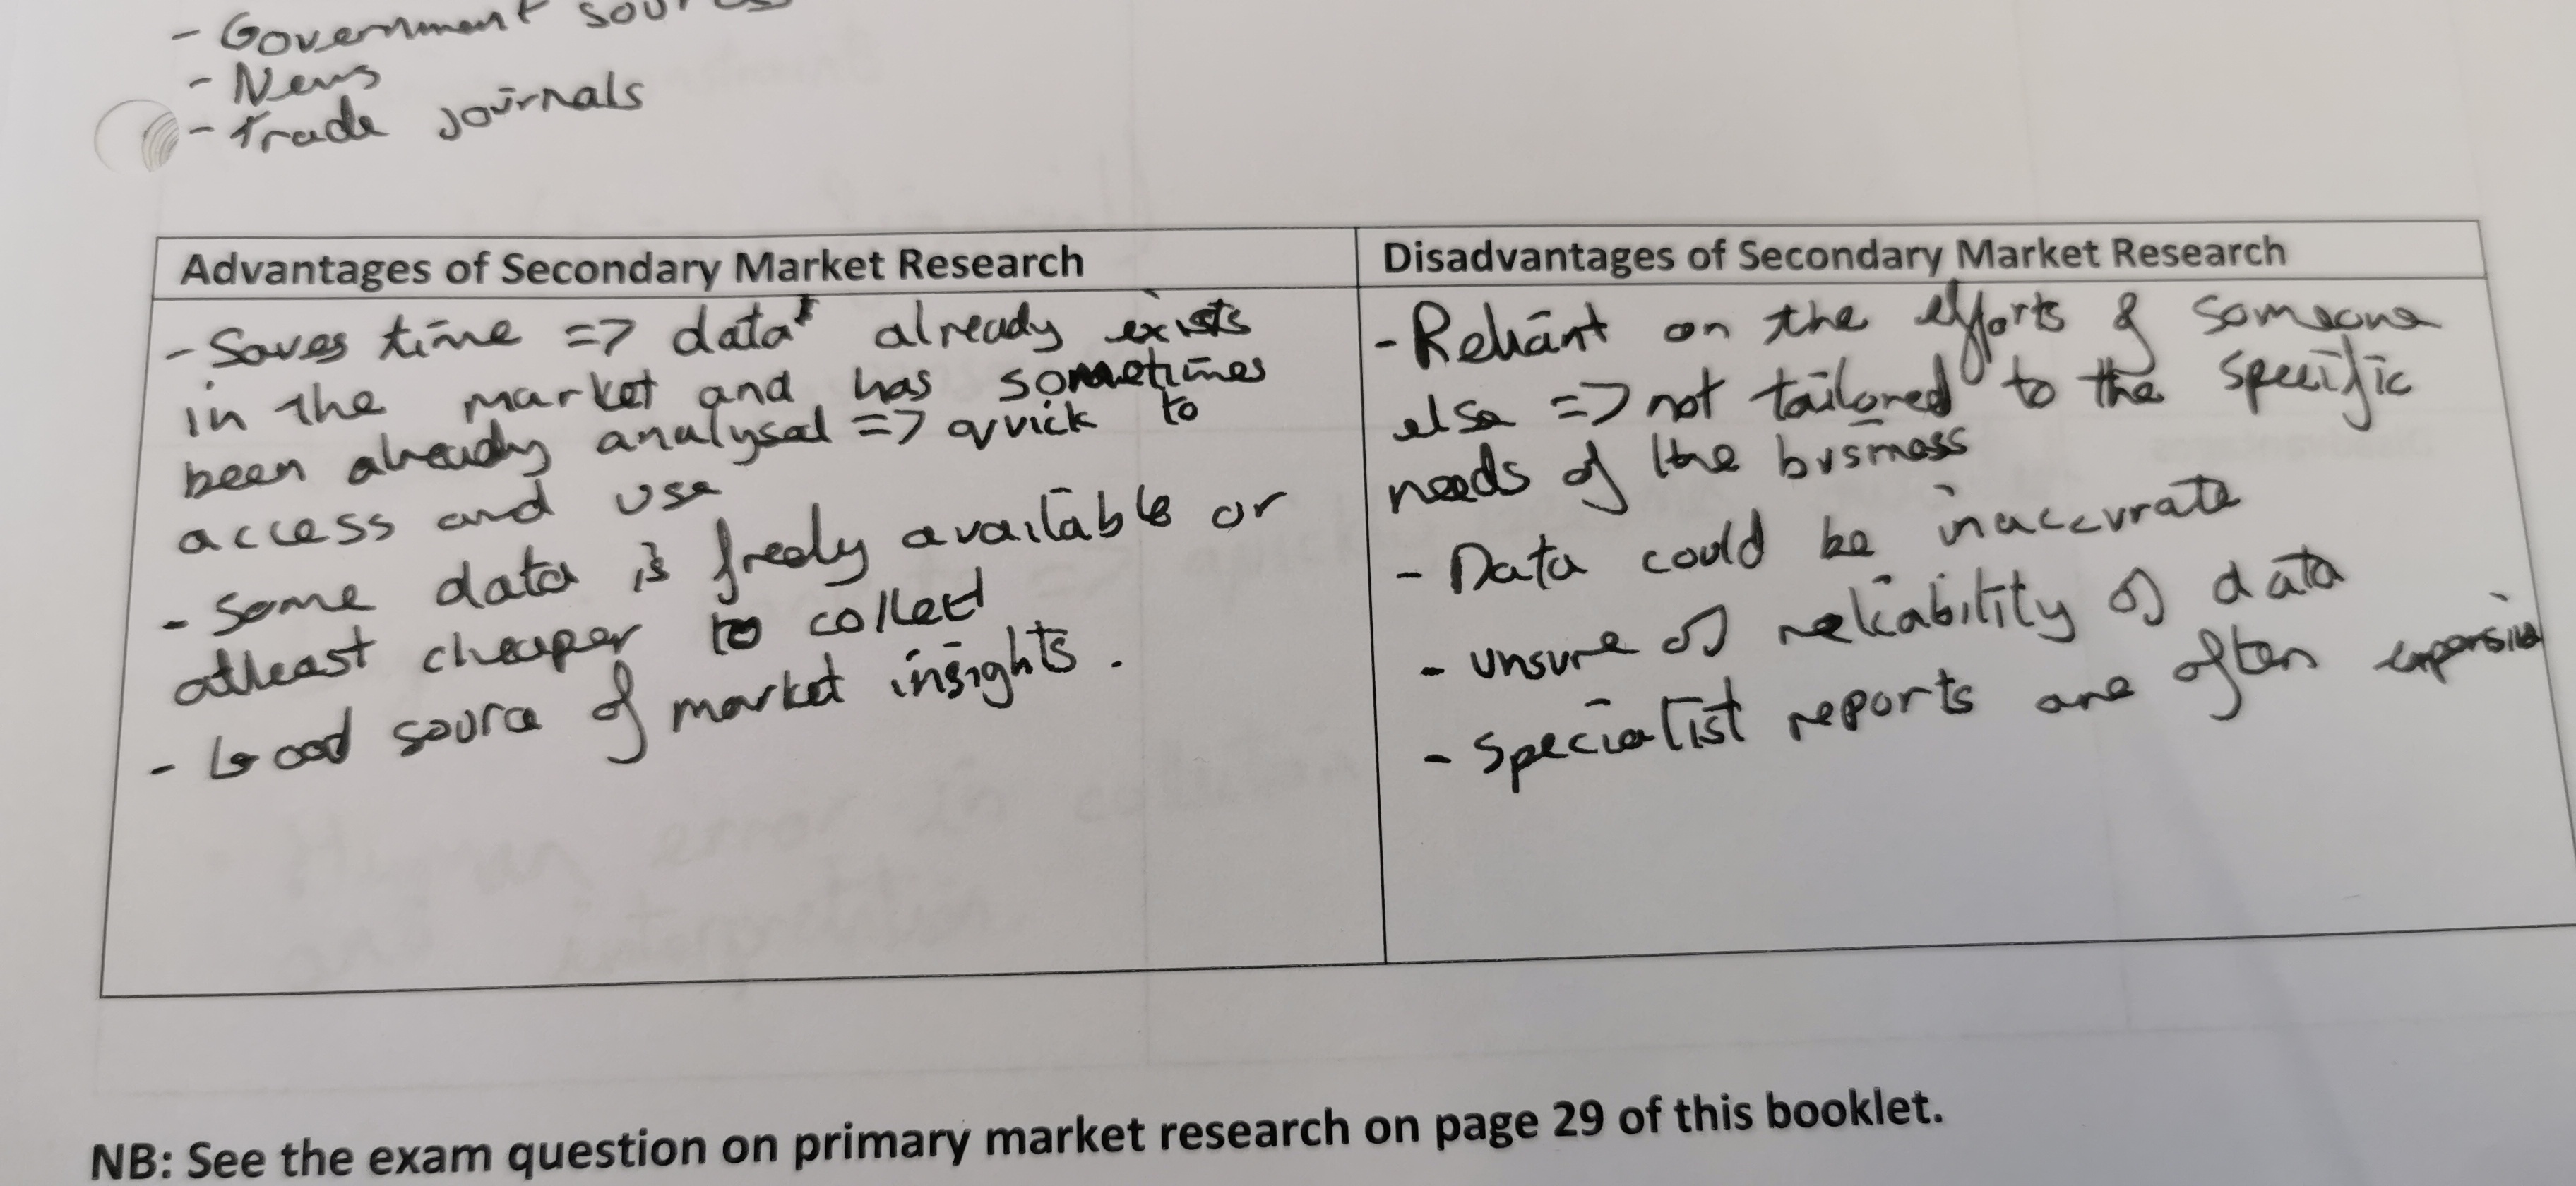 - Government sources
- News
- Trade journals
Advantages of Secondary Market Research
- Saves time => data already exists
in the market and has sometimes
been already analysed => quick to
access and use
- Some data is freely available or
atleast cheaper to collect
- Good source of market insights.
Disadvantages of Secondary Market Research
- Reliant on the efforts of someone
else => not tailored to the specific
needs of the business
- Data could be inaccurate
- unsure of reliability of data
- Specialist reports are often expensive
NB: See the exam question on primary market research on page 29 of this booklet.